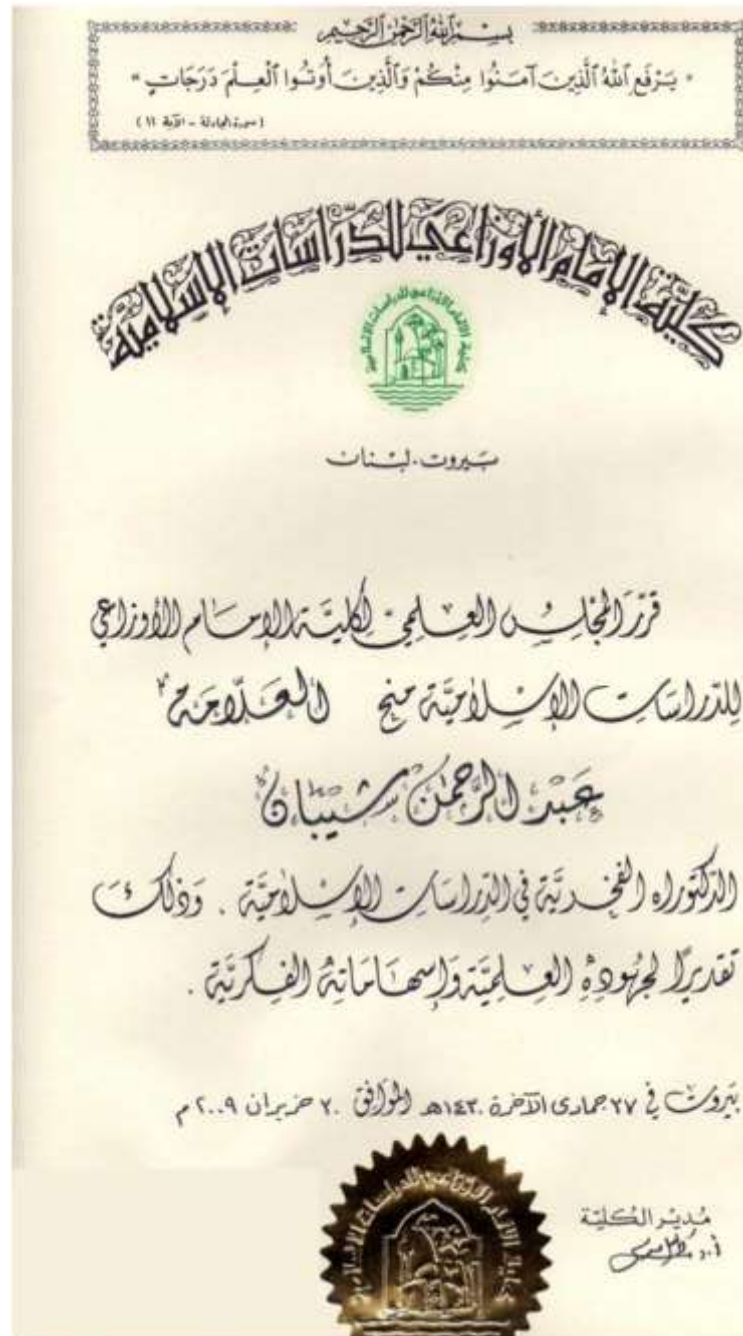 بسم الله الرحمن الرحيم
" يَرْفَعِ اللهُ الَّذِينَ آمَنُوا مِنْكُمْ وَالَّذِينَ أُوتُوا الْعِلْمَ دَرَجَاتٍ "
( سورة المجادلة - الآية ١١ )
كليّة الإمام الأوزاعي للدّراسات الإسلامية
كلية الإمام الأوزاعي للدراسات الإسلامية
بيروت . لبنان
قرّر المجلس العلميّ لكليّة الإمام الأوزاعي
للدّراسات الإسلاميّة منح العلّامة
عبد الرحمن شيبان
الدكتوراه الفخريّة في الدّراسات الإسلاميّة . وذلك
تقديرًا لجهوده العلميّة وإسهاماته الفكريّة .
بيروت في ٢٧ جمادى الآخرة ١٤٣٠هـ الموافق ٢٠ حزيران ٢٠٠٩ م
مُدير الكليّة
أ.د
كلية الإمام الأوزاعي للدراسات الإسلامية